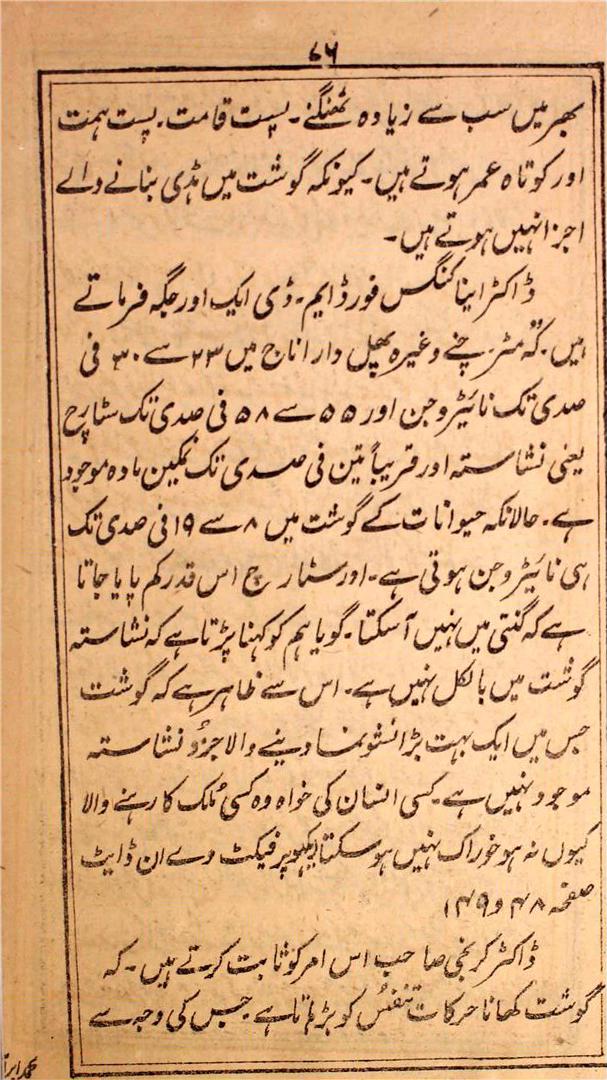 ۷۶
بھر میں سب سے زیادہ ٹھنگنے۔ پست قامت۔ پست ہمت
اور کوتاہ عمر ہوتے ہیں۔ کیونکہ گوشت میں ہڈی بنانے والے
اجزا نہیں ہوتے ہیں۔
ڈاکٹر اینا کنگس فورڈ ایم۔ ڈی ایک اور جگہ فرماتے
ہیں۔ کہ مٹر چنے وغیرہ پھل دار اناج میں ۲۳ سے ۳۰ فی
صدی تک نائیٹروجن اور ۵۵ سے ۵۸ فی صدی تک سٹارچ
یعنی نشاستہ اور قریباً تین فی صدی تک نمکین مادہ موجود
ہے۔ حالانکہ حیوانات کے گوشت میں ۸ سے ۱۹ فی صدی تک
ہی نائیٹروجن ہوتی ہے۔ اور سٹارچ اس قدر کم پایا جاتا
ہے کہ گنتی میں نہیں آسکتا۔ گویا ہم کو کہنا پڑتا ہے کہ نشاستہ
گوشت میں بالکل نہیں ہے۔ اس سے ظاہر ہے کہ گوشت
جس میں ایک بہت بڑا نشوونما دینے والا جزُو نشاستہ
موجود نہیں ہے۔ کسی انسان کی خواہ وہ کسی مُلک کا رہنے والا
کیوں نہ ہو خوراک نہیں ہو سکتا پرفیکٹ وے ان ڈایٹ
صفحہ ۴۸ و ۴۹)
ڈاکٹر صاحب اس امر کو ثابت کرتے ہیں۔ کہ
گوشت کھانا حرکات تنفُس کو بڑھاتا ہے جس کی وجہ سے